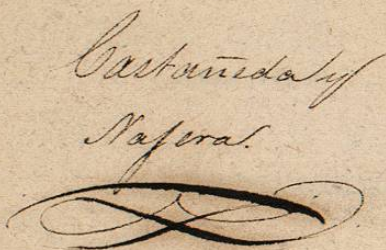 Castañeda y
Najera.